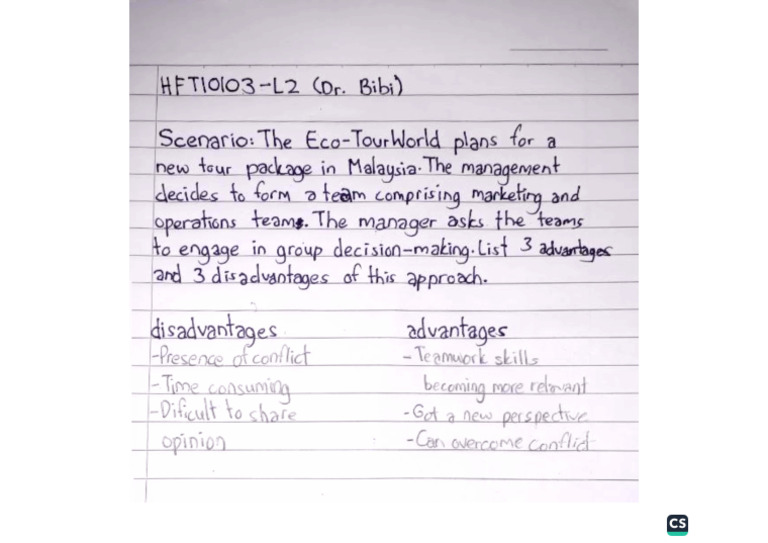 HFT10103-L2 (Dr. Bibi)
Scenario: The Eco-TourWorld plans for a
new tour package in Malaysia. The management
decides to form a team comprising marketing and
operations teams. The manager asks the teams
to engage in group decision-making. List 3 advantages
and 3 disadvantages of this approach.
disadvantages
-Presence of conflict
-Time consuming
-Dificult to share
opinion
advantages
-Teamwork skills
becoming more relevant
-Got a new perspective
-Can overcome conflict
CS